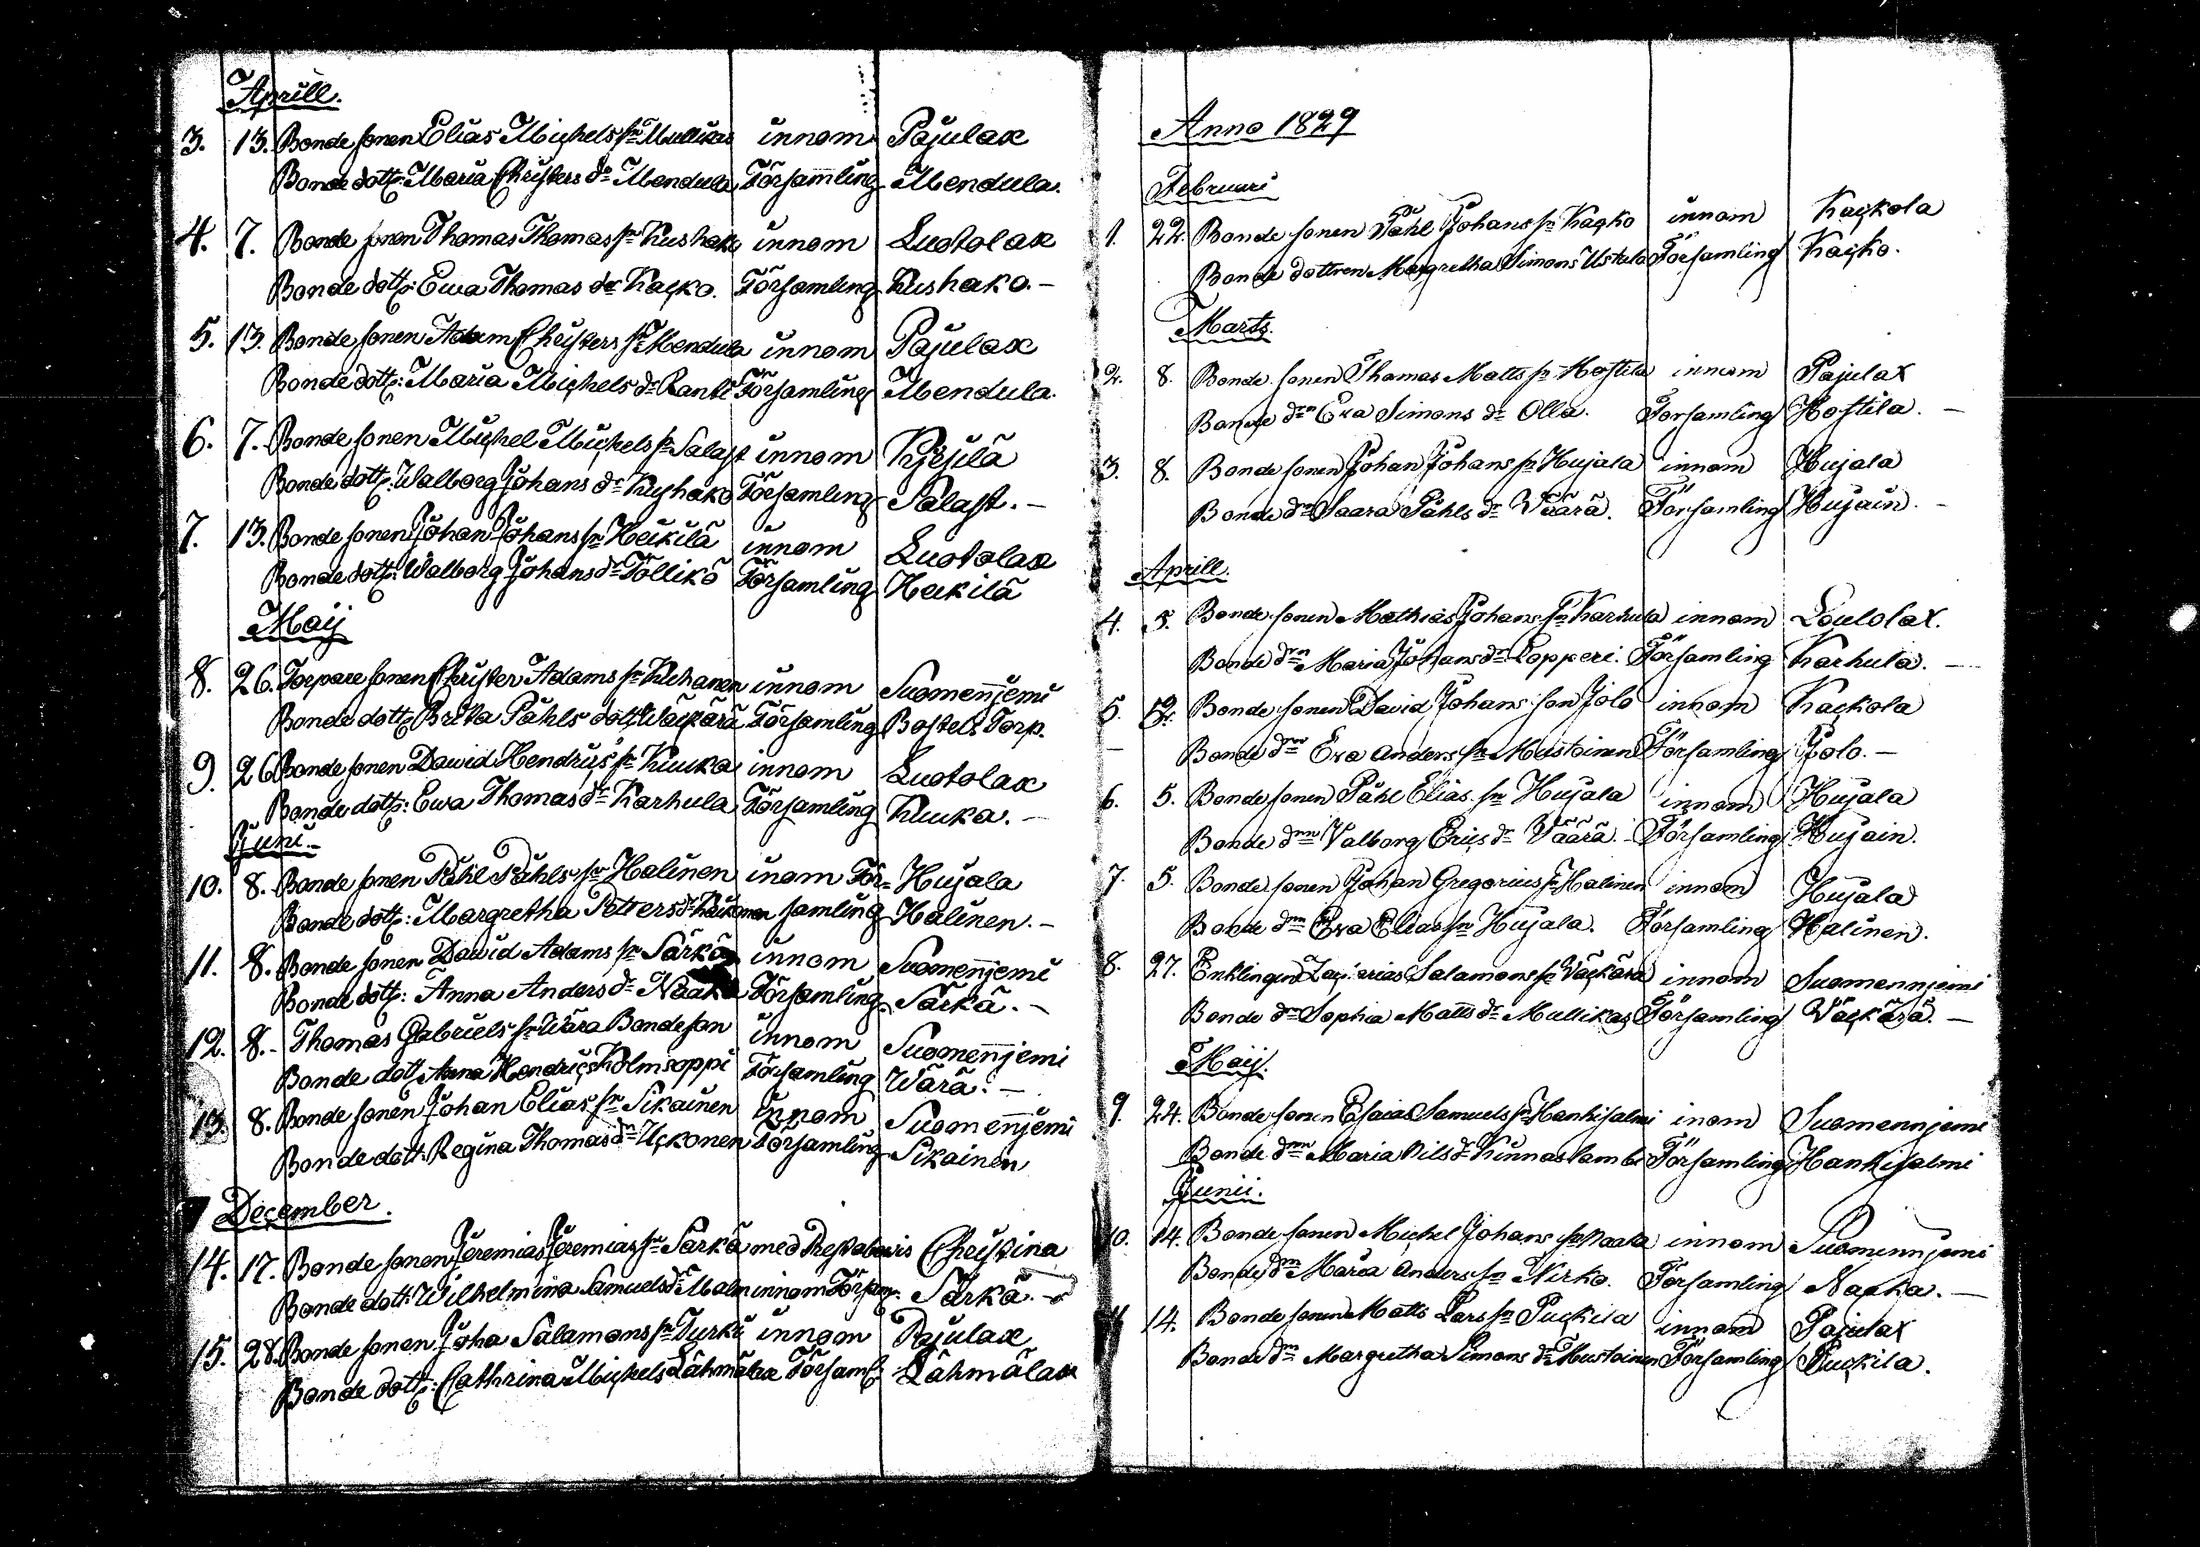 Aprill.
3. 13. Bonde sonen Elias Michels sn Mullikas innom Pajulax
Bonde dottr: Maria Christers dr Mendula Församling Mendula.
4. 7. Bonde sonen Thomas Thomas sn Kushako innom Luotolax
Bonde dottr: Ewa Thomas dr Kacko. Församling Kushako. –
5. 13. Bonde sonen Adam Christers sn Mendula innom Pajulax
Bonde dottr: Maria Michels dr Ranki Församling Mendula.
6. 7. Bonde sonen Michel Michels sn Salast innom
Bonde dottr: Walborg Johans dr Kushako Församling Salast. –
7. 13. Bonde sonen Johan Johans sn Heikilä innom Luotolax
Bonde dottr: Walborg Johans dr Töllikö Församling Heikilä
Maij
8. 26. Torpare sonen Christer Adams sn Kuhanen innom Suomenjemi
Bonde dottr Brita Påhls dott Wäckärä Församling Bostels Torp.
9. 26. Bonde sonen Dawid Hendrics sn Kuuka innom Luotolax
Bonde dottr: Ewa Thomas dr Karhula Församling Kuuka. –
Juni. –
10. 8. Bonde sonen Påhl Påhls sn Halinen inom För= Hujala
Bonde dottr: Margretha Petters dr samling Halinen. –
11. 8. Bonde sonen Dawid Adams sn Särkä innom Suomenjemi
Bonde dottr: Anna Anders dr Naaka Församling Särkä. –
12. 8. – Thomas Gabriels sn Wärä Bondeson innom Suomenjemi
Bonde dott Anna Hendrics Kolmisoppi Församling Wärä. –
13. 8. Bonde sonen Johan Elias sn Sikainen innom Suomenjemi
Bonde dott: Regina Thomas dr Uckonen Församling Sikainen
December.
14. 17. Bonde sonen Jeremias Jeremias sn Särkä med Prestabewis Christina
Bonde dott: Wilhelmina Samuels dr Malm innom Försam. Särkä. –
15. 28. Bonde sonen Joha Salamons sn Turki innom Pajulax
Bonde dottr: Cathrina Michels Lähmälax Församl: Lähmälax
Anno 1829
Februari
1. 22. Bonde sonen Påhl Johans sn Kacko innom Kackola
Bonde dottren Margretha Simons Ustala Församling Kacko.
Marts.
2. 8. Bonde sonen Thomas Matts sn Hostila innom Pajulax
Bonde drn Eva Simons dr Olla. Församling Hostila. –
3. 8. Bonde sonen Johan Johans sn Hujala innom Hujala
Bonde drn Saara Påhls dr Väärä. Församling Hujain. –
Aprill.
4. 5. Bonde sonen Mathias Johans sn Karhula innom Loulolax.
Bonde drn Maria Johans dr Lopperi. Församling Karhula. –
5. Bonde sonen David Johans son Jolo innom Kackola
Bonde drn Eva Anders sn Mustoinen Församling Jolo. –
6. 5. Bonde sonen Påhl Elias sn Hujala innom Hujala
Bonde drn Valborg Erics dr Väärä. Församling Hujain.
7. 5. Bonde sonen Johan Gregorius sn Halinen innom Hujala
Bonde drn Eva Elias sn Hujala. Församling Halinen.
8. 27. Enklingen Zacharias Salamons sn Väckärä innom Suomennjemi
Bonde dr Sophia Matts dr Mullikas Församling Väckärä. –
Maij.
9. 24. Bonde sonen Esaias Samuels sn Hankisalmi inom Suomennjemi
Bonde drn Maria Nils dr Kinnaslambi Församling Hankisalmi
Junii.
10. 14. Bonde sonen Michel Johans sn Naaka innom Suomennjemi
Bonde drn Maria Anders sn Nirko. Församling Naaka. –
11 14. Bonde sonen Matts Lars sn Puckila innom Pajulax
Bonde drn Margretha Simons dr Mustoinen Församling Puckila.